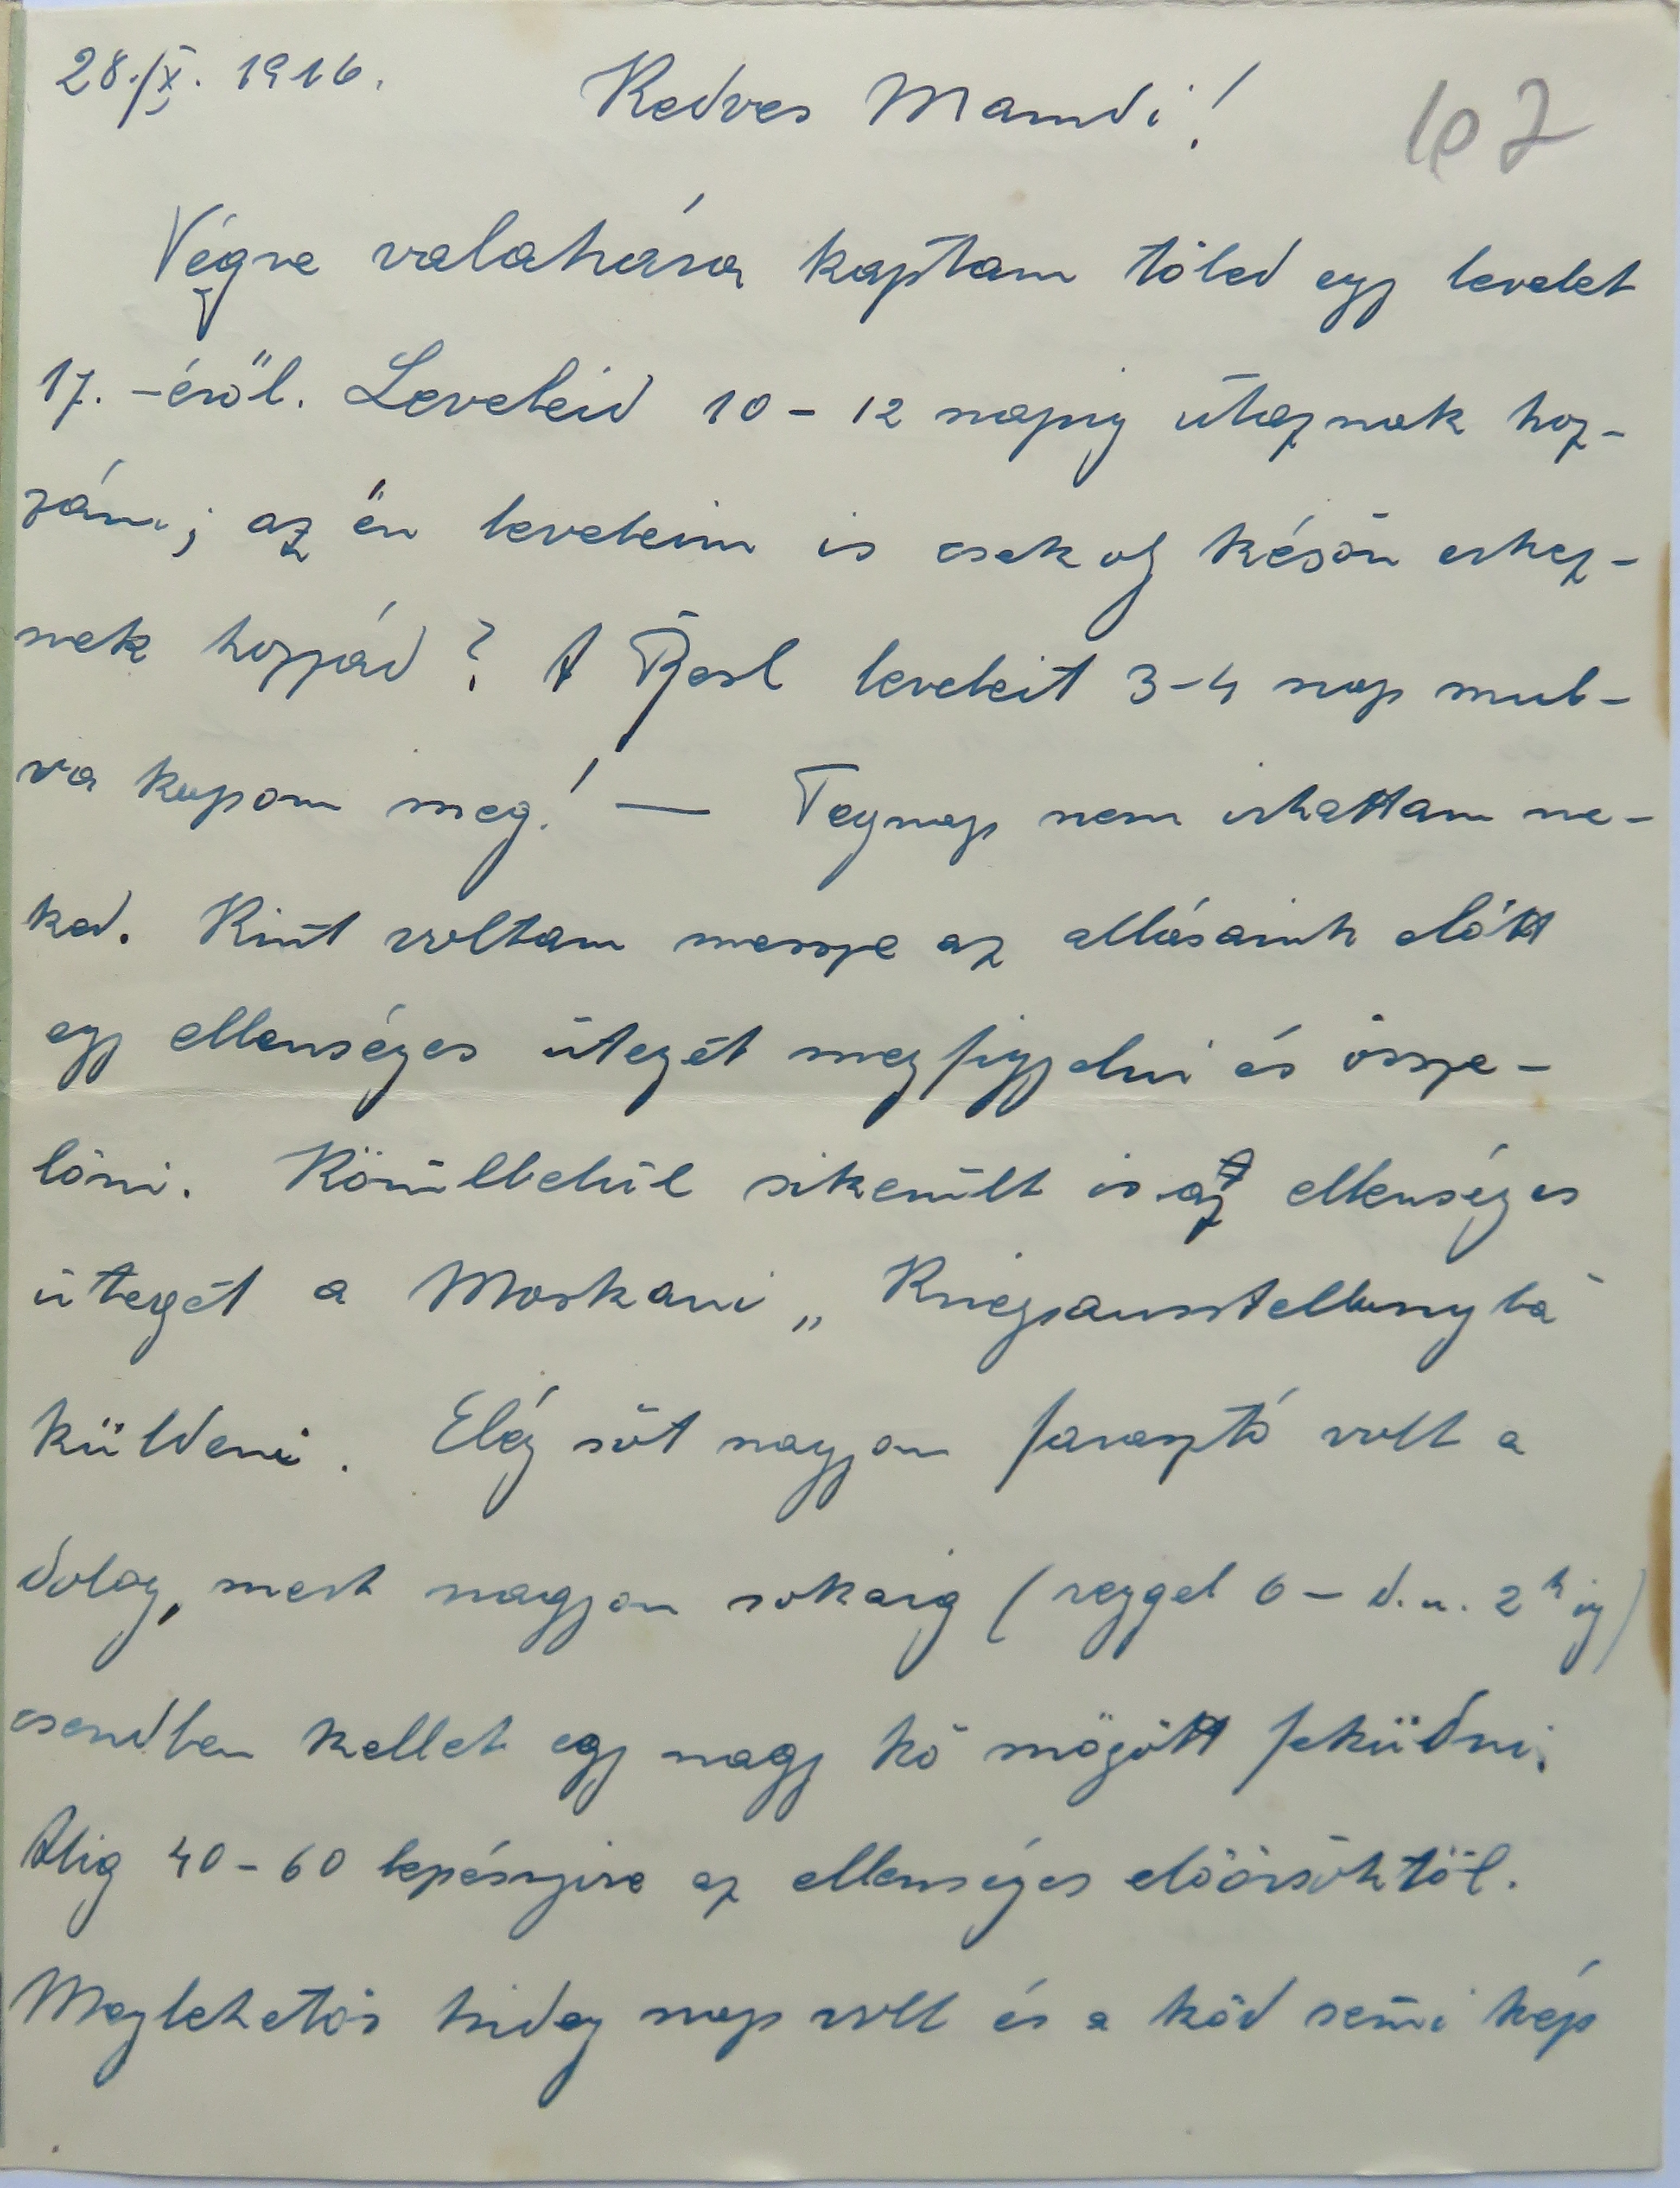 28./X. 1916.
Kedves Mamdi!
107
Végre valahára kaptam tőled egy levelet
17.-éről. Leveleid 10-12 napig útaznak hoz-
zám; az én leveleim is csak oly késön erkez-
nek hozzád? A leveleit 3-4 nap mul-
va kapom meg! — Tegnap nem irhattam ne-
ked. Kint voltam messze az allásaink előtt
egy ellenséges üteget megfigyelni és össze-
lőni. Körülbelül sikerült is az ellenséges
üteget a Moskaui „Kriegsausstellungba"
küldeni. Elég söt nagyon farasztó volt a
dolog, mert nagyon sokaig (reggel 6 - d.u. 2h ig)
csendben kellet egy nagy kő mögött feküdni.
Alig 40-60 lepésnyire az ellenséges előörsöktől.
Meglehetős hideg nap volt és a köd semi kép